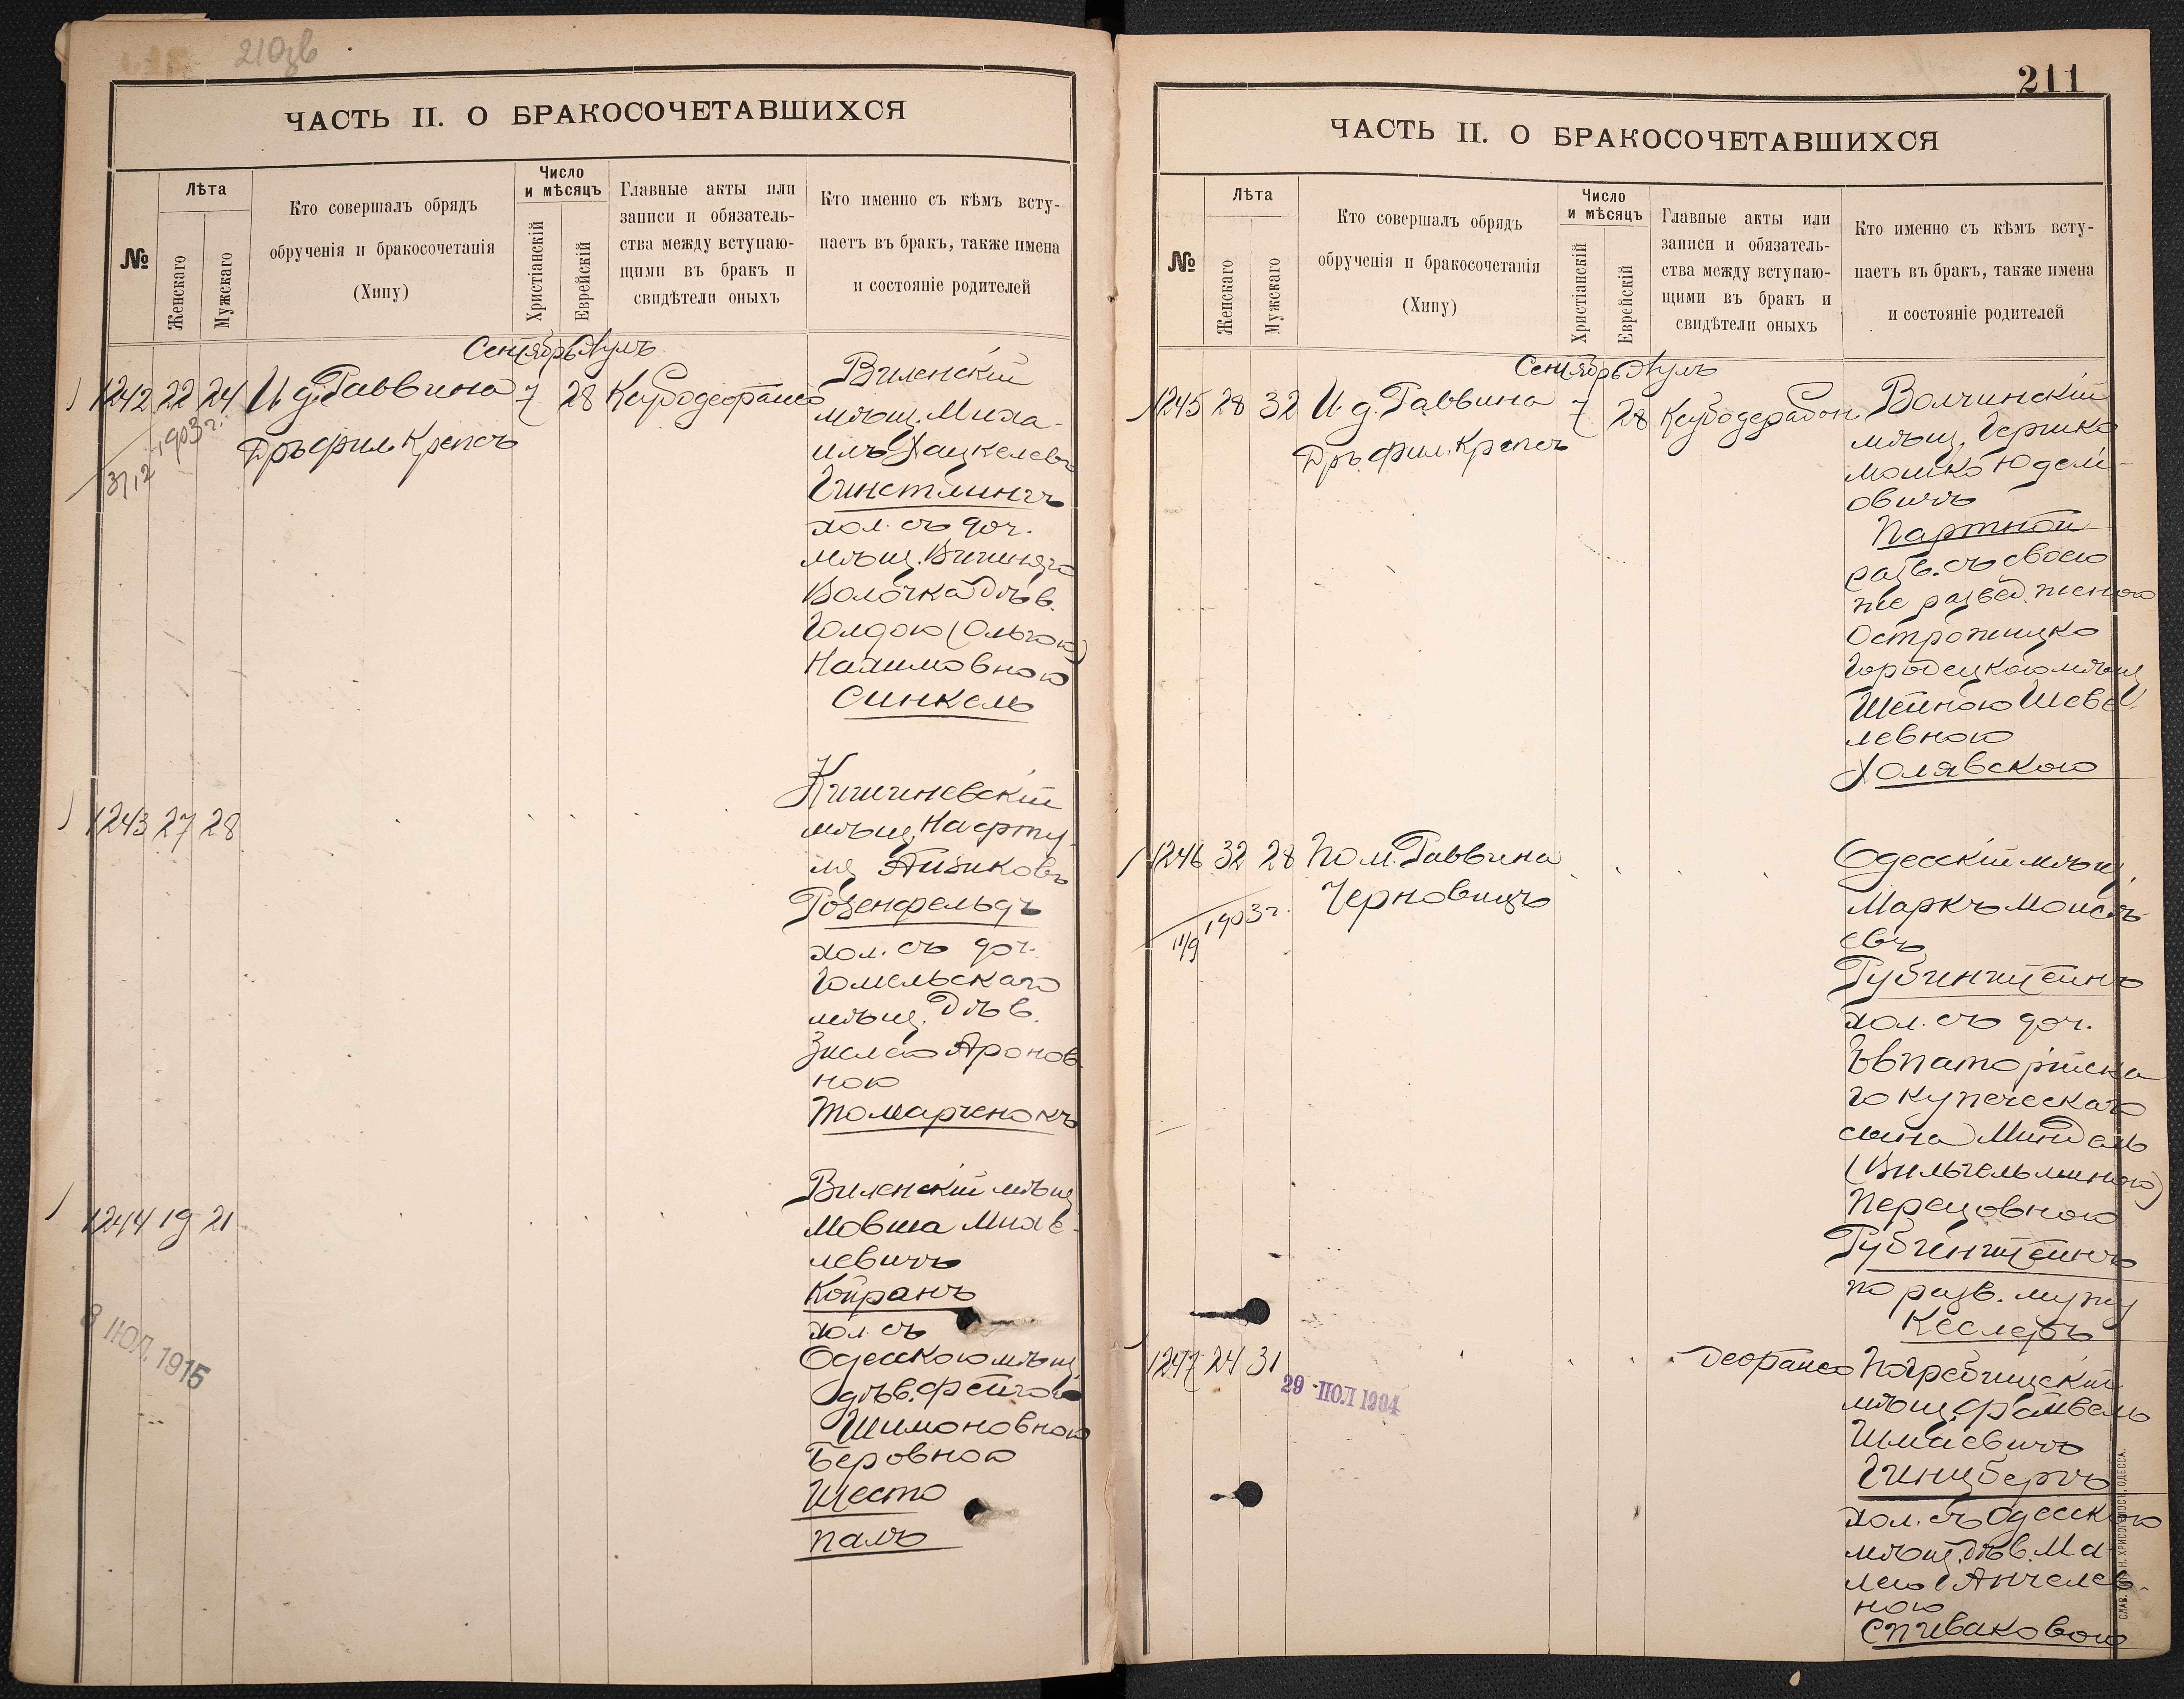 210зв
ЧАСТЬ II. О БРАКОСОЧЕТАВШИХСЯ
№
Лѣта
Женскаго
Мужскаго
Кто совершалъ обрядъ
обрученія и бракосочетанія
(Хипу)
Число
и мѣсяцъ
Христіанскій
Еврейскій
Главные акты или
записи и обязатель-
ства между вступаю-
щими въ бракъ и
свидѣтели оныхъ
Кто именно съ кѣмъ всту-
паетъ въ бракъ, также имена
и состояніе родителей
Сентябрь Аулъ
1242 22 24 И. д. Раввина 7 28
Дръ фил. Крепсъ
1903 г.
31/12
Виленскій
мѣщ. Миха-
илъ Хацкелевъ
Гинстлингъ
хол. съ доч.
мѣщ. Вышняго
Волочка дѣв.
Голдою (Ольгою)
Нахимовною
Синкель
1243 27 28
Кишиневскій
мѣщ. Нафту-
ла Айзиковъ
Розенфельдъ
хол. съ доч.
Гомельскаго
мѣщ. дѣв.
Зислею Аронов-
ною
Томарченокъ
1244 19 21
Виленскій мѣщ
Мовша Михе-
левичъ
Койранъ
хол. съ
Одесскою мѣщ
дѣв. Фейгою
Шимоновною
Беровною
Шесто
палъ
8 ІЮЛ. 1915
211
ЧАСТЬ II. О БРАКОСОЧЕТАВШИХСЯ
№
Лѣта
Женскаго
Мужскаго
Кто совершалъ обрядъ
обрученія и бракосочетанія
(Хипу)
Число
и мѣсяцъ
Христіанскій
Еврейскій
Главные акты или
записи и обязатель-
ства между вступаю-
щими въ бракъ и
свидѣтели оныхъ
Кто именно съ кѣмъ всту-
паетъ въ бракъ, также имена
и состояніе родителей
Сентябрь Аулъ
1245 28 32 И. д. Раввина 7 28
Дръ фил. Крепсъ
Волчинскій
мѣщ. Гершко
Мошко Юделі-
овичъ
Партной
разв. съ своею
же развед. женою
Острожицко
Городецкою мѣщ
Шейною Шеве-
левною
Холявскою
1246 32 28 Пом. Раввина
Черновицъ
1903 г.
11/9
Одесскій мѣщ.
Маркъ Моисѣ-
евъ
Рубинштейнъ
хол. съ доч.
Евпаторійска
го купеческаго
сына Миндель
(Вильгельминою)
Перецовною
Рубинштейнъ
по разв. мужу
Кеслеръ
1247 24 31
29 ІЮЛ 1904
Погребищскій
мѣщ.
Шмаевичъ
Гинцбергъ
хол. съ Одесскою
мѣщ. дѣв. Ма-
лею Анчелев-
ною
Спиваковою
СЛАВ. ТИП. Н. ХРИСОГЕЛОСЪ, ОДЕССА.